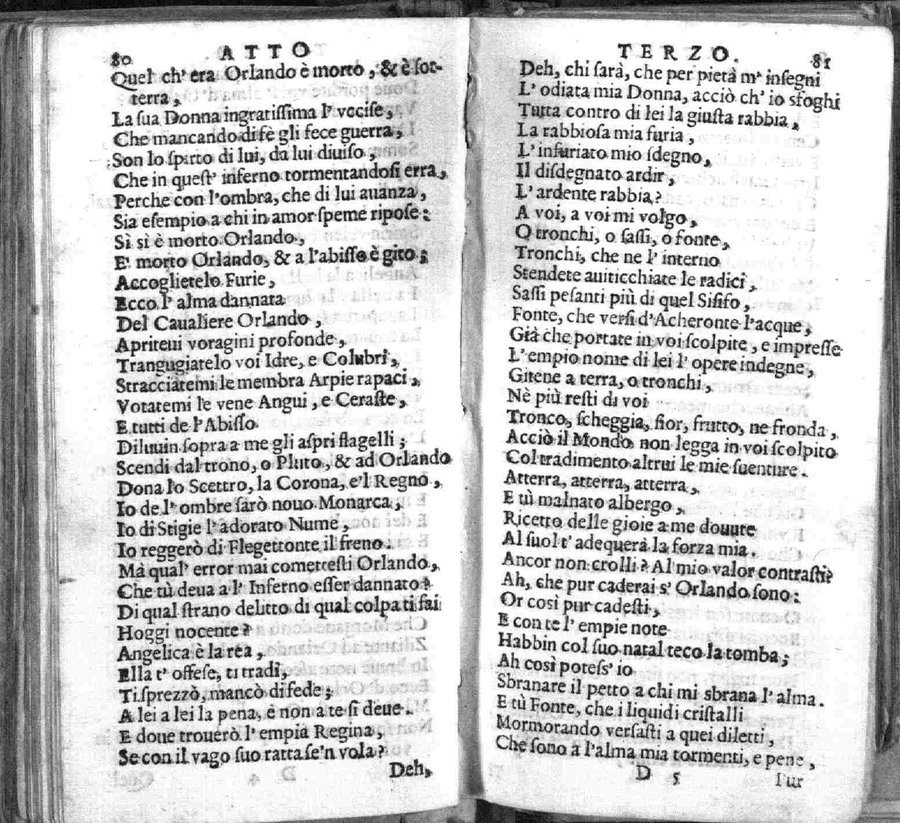 80 ATTO
Quel ch' era Orlando è morto, & è sot-
terra,
La sua Donna ingratissima l' vccise,
Che mancando di fè gli fece guerra,
Son lo spirto di lui, da lui diuiso,
Che in quest' inferno tormentandosi erra,
Perche con l'ombra, che di lui auanza,
Sia esempio a chi in amor speme ripose:
Sì sì è morto Orlando,
E' morto Orlando, & a l'abisso è gito;
Accoglietelo Furie,
Ecco l' alma dannata
Del Caualiere Orlando,
Apriteui voragini profonde,
Trangugiatelo voi Idre, e Colubri,
Stracciatemi le membra Arpie rapaci,
Votatemi le vene Angui, e Ceraste,
E tutti de l'Abisso
Diluuin sopra a me gli aspri flagelli;
Scendi dal trono, o Pluto, & ad Orlando
Dona lo Scettro, la Corona, e'l Regno,
Io de l' ombre sarò nouo Monarca,
Io di Stigie l' adorato Nume,
Io reggerò di Flegettonte il freno.
Mà qual' error mai comettesti Orlando,
Che tù deua a l' Inferno esser dannato?
Di qual strano delitto di qual colpa ti fai
Hoggi nocente?
Angelica è la rea,
Ella t' offese, ti tradì,
Ti sprezzò, mancò di fede;
A lei a lei la pena, e non a te si deue.
E doue trouerò l' empia Regina,
Se con il vago suo ratta se'n vola?
Deh,
TERZO. 81
Deh, chi sarà, che per pietà m' insegni
L' odiata mia Donna, acciò ch' io sfoghi
Tutta contro di lei la giusta rabbia,
La rabbiosa mia furia,
L' infuriato mio sdegno,
Il disdegnato ardir,
L' ardente rabbia?
A voi, a voi mi volgo,
O tronchi, o sassi, o fonte,
Tronchi, che ne l' interno
Stendete auiticchiate le radici,
Sassi pesanti più di quel Sisifo,
Fonte, che versi d'Acheronte l'acque,
Già che portate in voi scolpite, e impresse
L' empio nome di lei l' opere indegne,
Gitene a terra, o tronchi,
Nè più resti di voi
Tronco, scheggia, fior, frutto, ne fronda,
Acciò il Mondo non legga in voi scolpito
Col tradimento altrui le mie suenture.
Atterra, atterra, atterra,
E tù malnato albergo,
Ricetto delle gioie a me douute
Al suol t' adequerà la forza mia.
Ancor non crolli? Al mio valor contrasti?
Ah, che pur caderai s' Orlando sono:
Or così pur cadesti,
E con te l' empie note
Habbin col suo natal teco la tomba;
Ah così potess' io
Sbranare il petto a chi mi sbrana l' alma.
E tù Fonte, che i liquidi cristalli
Mormorando versasti a quei diletti,
Che sono a l'alma mia tormenti, e pene,
D 5 Pur